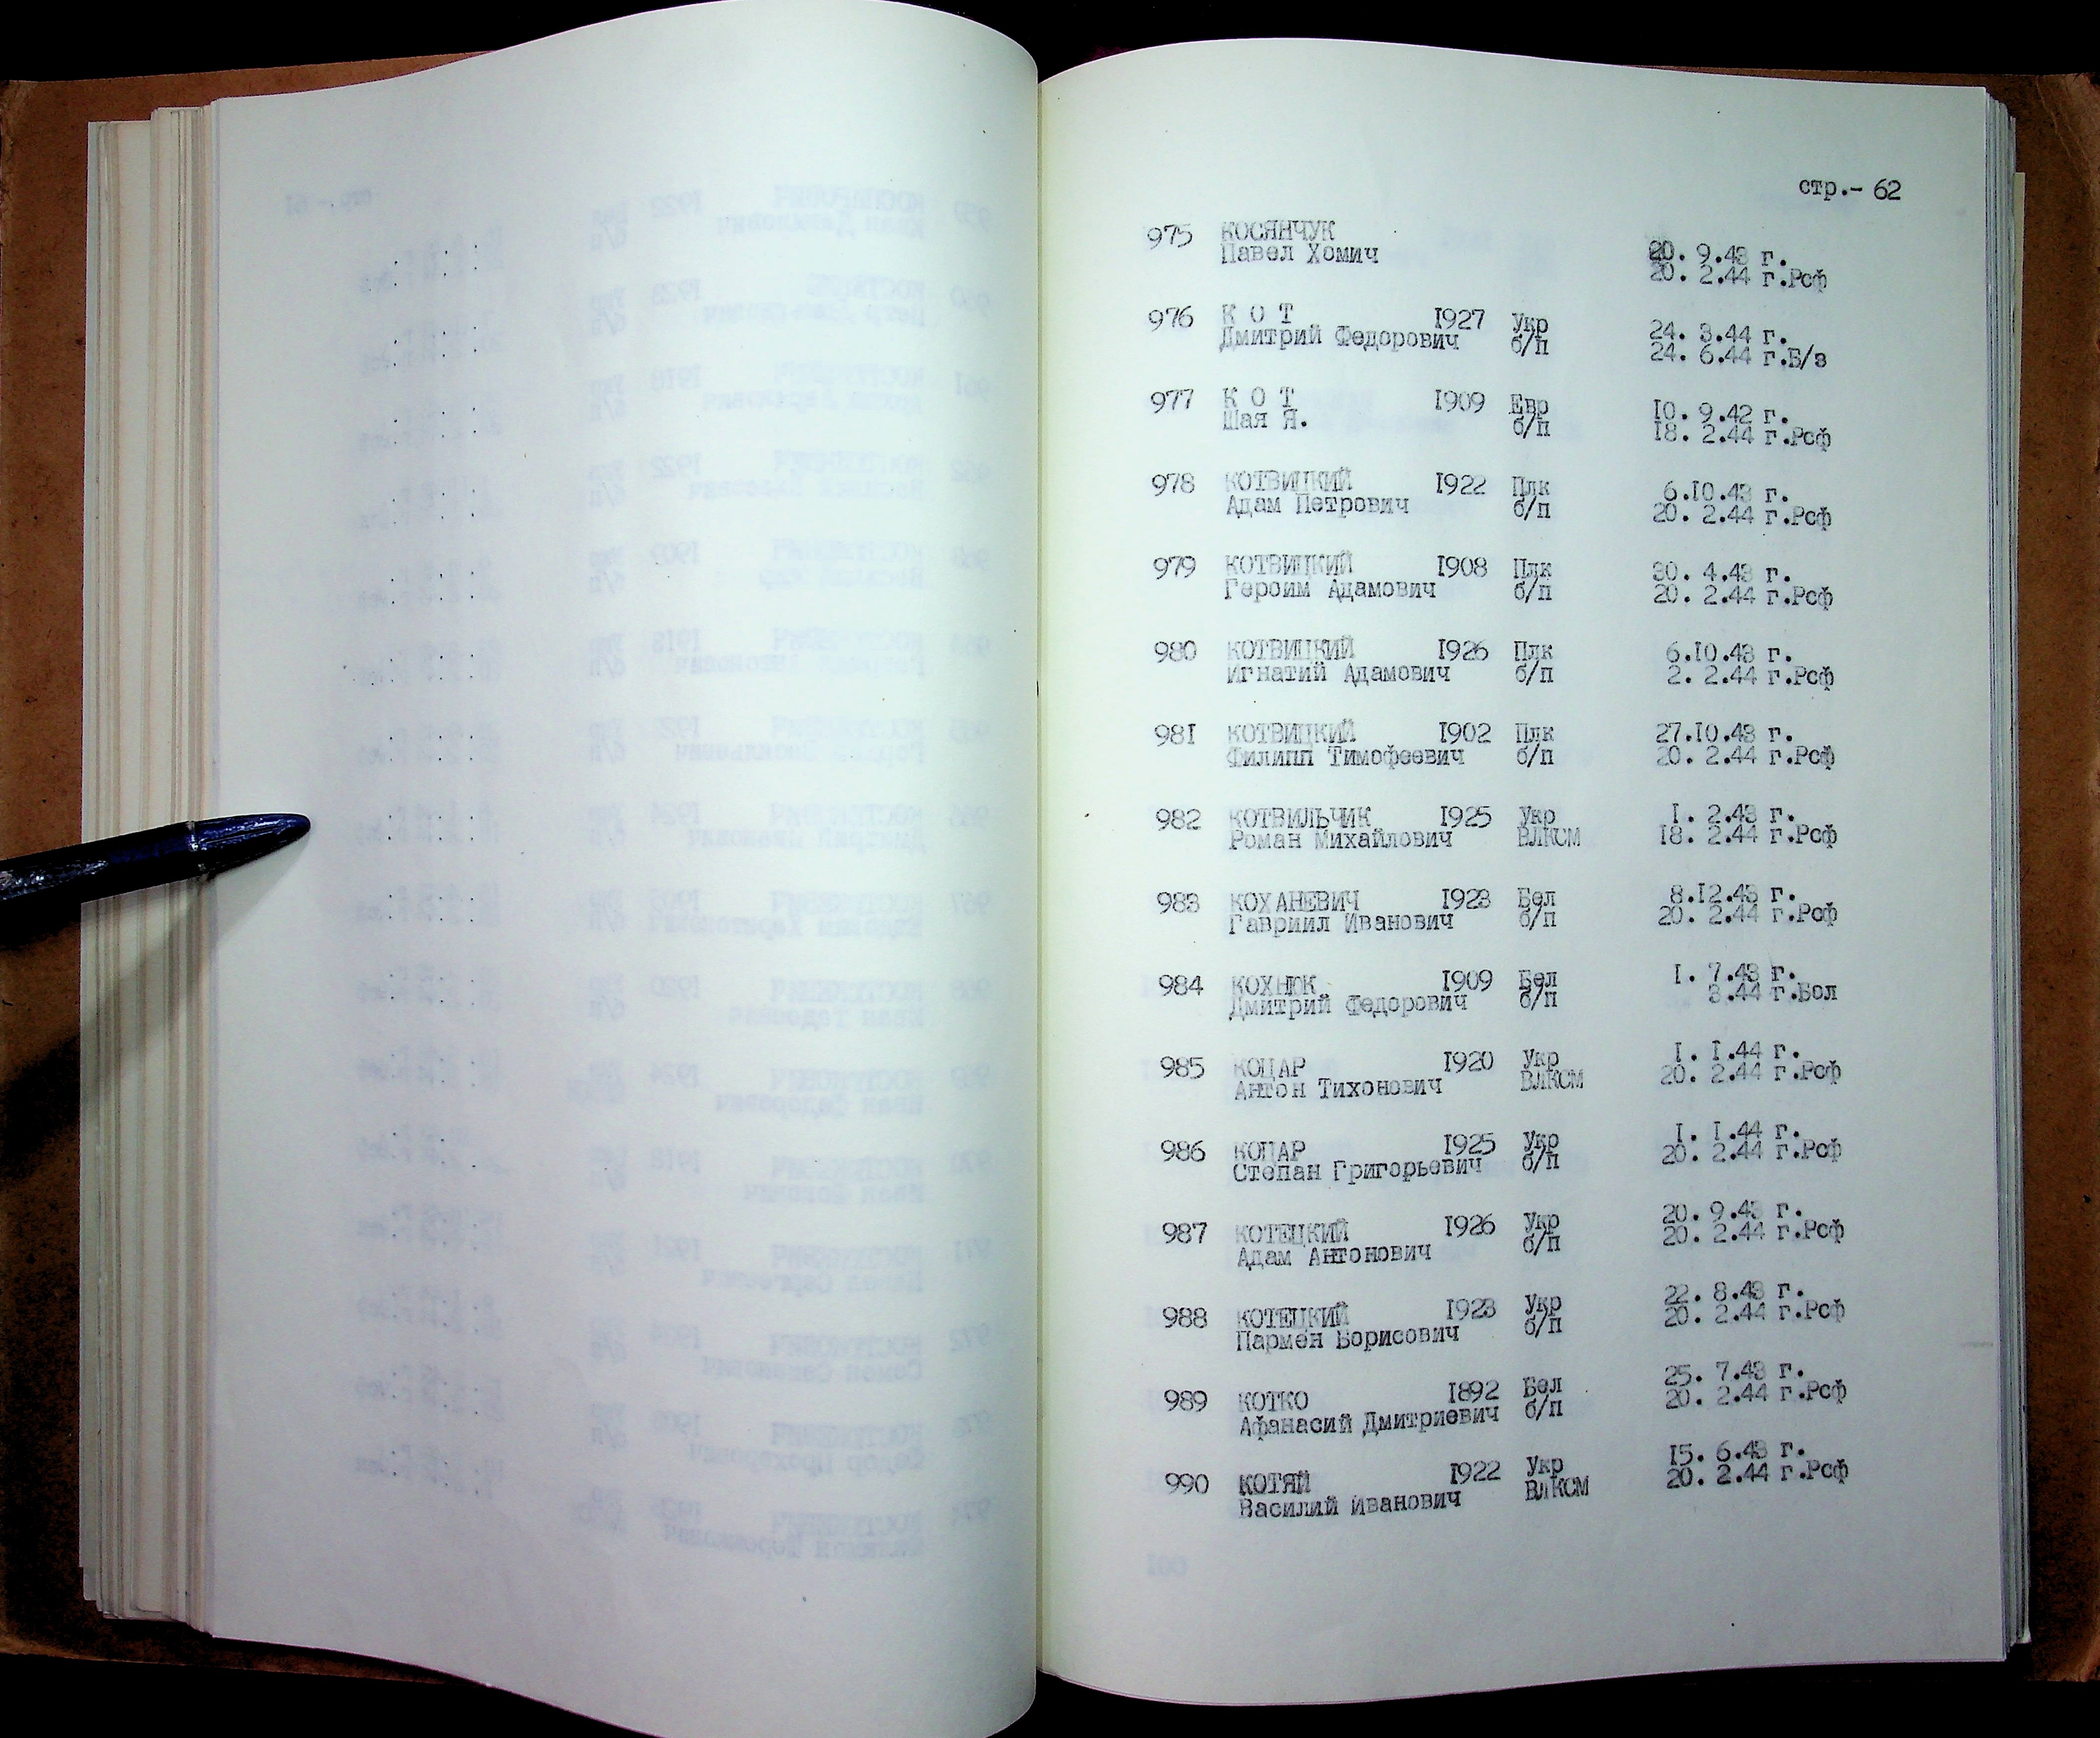 стр.- 62
975 КОСЯНЧУК
Павел Хомич 20. 9.43 г.
20. 2.44 г.Рсф
976 К О Т 1927 Укр 24. 3.44 г.
Дмитрий Федорович б/п 24. 6.44 г.Б/з
977 К О Т 1909 Евр 10. 9.42 г.
Шая Я. б/п 18. 2.44 г.Рсф
978 КОТВИЦКИЙ 1922 Плк 6.10.43 г.
Адам Петрович б/п 20. 2.44 г.Рсф
979 КОТВИЦКИЙ 1908 Плк 30. 4.43 г.
Героим Адамович б/п 20. 2.44 г.Рсф
980 КОТВИЦКИЙ 1926 Плк 6.10.43 г.
Игнатий Адамович б/п 2. 2.44 г.Рсф
981 КОТВИЦКИЙ 1902 Плк 27.10.43 г.
Филипп Тимофеевич б/п 20. 2.44 г.Рсф
982 КОТВИЛЬЧИК 1925 Укр 1. 2.43 г.
Роман Михайлович ВЛКСМ 18. 2.44 г.Рсф
983 КОХАНЕВИЧ 1923 Бел 8.12.43 г.
Гавриил Иванович б/п 20. 2.44 г.Рсф
984 КОХНЮК 1909 Бел 1. 7.43 г.
Дмитрий Федорович б/п 3.44 г.Бол
985 КОЦАР 1920 Укр 1. 1.44 г.
Антон Тихонович ВЛКСМ 20. 2.44 г.Рсф
986 КОЦАР 1925 Укр 1. 1.44 г.
Степан Григорьевич б/п 20. 2.44 г.Рсф
987 КОТЕЦКИЙ 1926 Укр 20. 9.43 г.
Адам Антонович б/п 20. 2.44 г.Рсф
988 КОТЕЦКИЙ 1923 Укр 22. 8.43 г.
Пармен Борисович б/п 20. 2.44 г.Рсф
989 КОТКО 1892 Бел 25. 7.43 г.
Афанасий Дмитриевич б/п 20. 2.44 г.Рсф
990 КОТЯЙ 1922 Укр 15. 6.43 г.
Василий Иванович ВЛКСМ 20. 2.44 г.Рсф